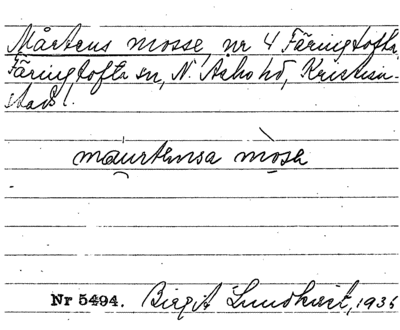 Mårtens mosse, nr 4 Färingtofta,
Färingtofta sn, N. Åsbo hd, Kristian-
stads l.
maurtensa mosa
Nr 5494. Birgit Lundkvist, 1935